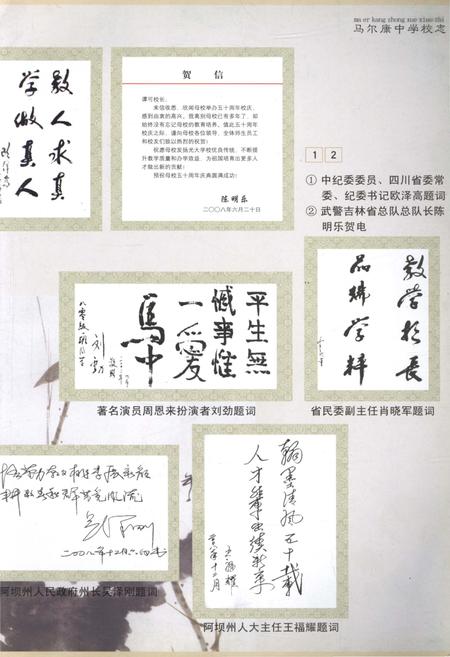 ma er kang zhong xue xiao zhi
马尔康中学校志
教人求真
学做真人
贺 信
谭可校长:
来信收悉，欣闻母校举办五十周年校庆，
感到由衷的高兴。我离别母校已有多年了，却
始终没有忘记母校的教育培养。值此五十周年
校庆之际，谨向母校各位领导、全体师生员工
和校友们致以热烈的祝贺!
祝愿母校发扬光大学校优良传统，不断提
升教学质量和办学效益，为祖国培育出更多人
才做出新的贡献!
预祝母校五十周年庆典圆满成功!
陈明乐
二〇〇八年六月二十日
1 2
① 中纪委委员、四川省委常
委、纪委书记欧泽高题词
② 武警吉林省总队总队长陈
明乐贺电
平生无
憾事惟
一爱
马中
刘劲
著名演员周恩来扮演者刘劲题词
教学相长
品端学粹
省民委副主任肖晓军题词
吴泽刚
二〇〇八年十二月六日
阿坝州人民政府州长吴泽刚题词
翰墨清风五十载
人才辈出续新章
王福耀
阿坝州人大主任王福耀题词